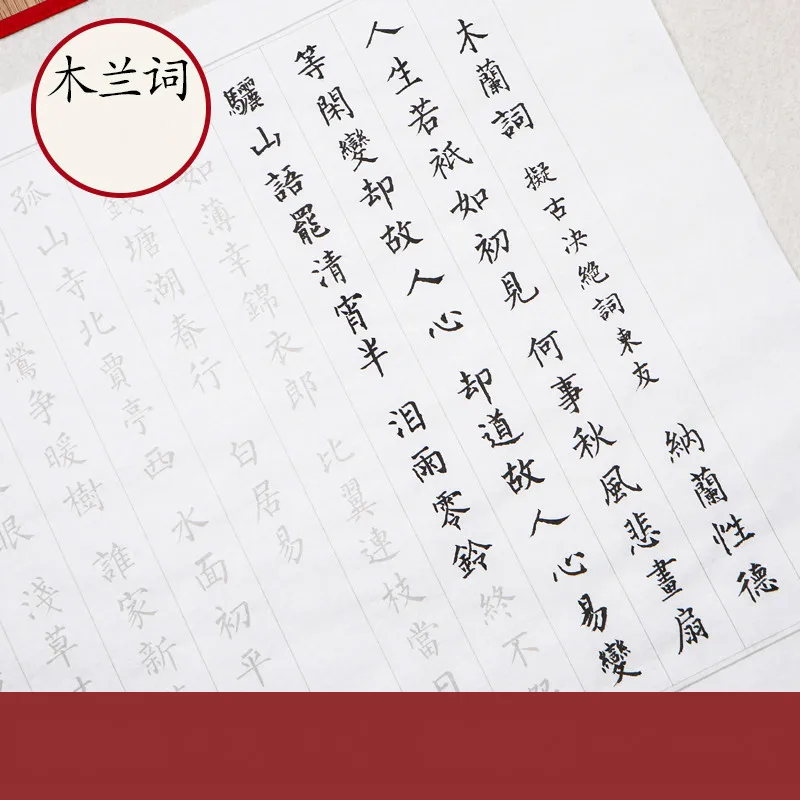 木兰词
木蘭詞 擬古决絶詞柬友 納蘭性德
人生若衹如初見 何事秋風悲畫扇
等閑變却故人心 却道故人心易變
驪山語罷清宵半 泪雨零鈴終不怨
如薄幸錦衣郎 比翼連枝當日
錢塘湖春行 白居易
孤山寺北賈亭西 水面初平
早鶯争暖樹 誰家新
眼 淺草